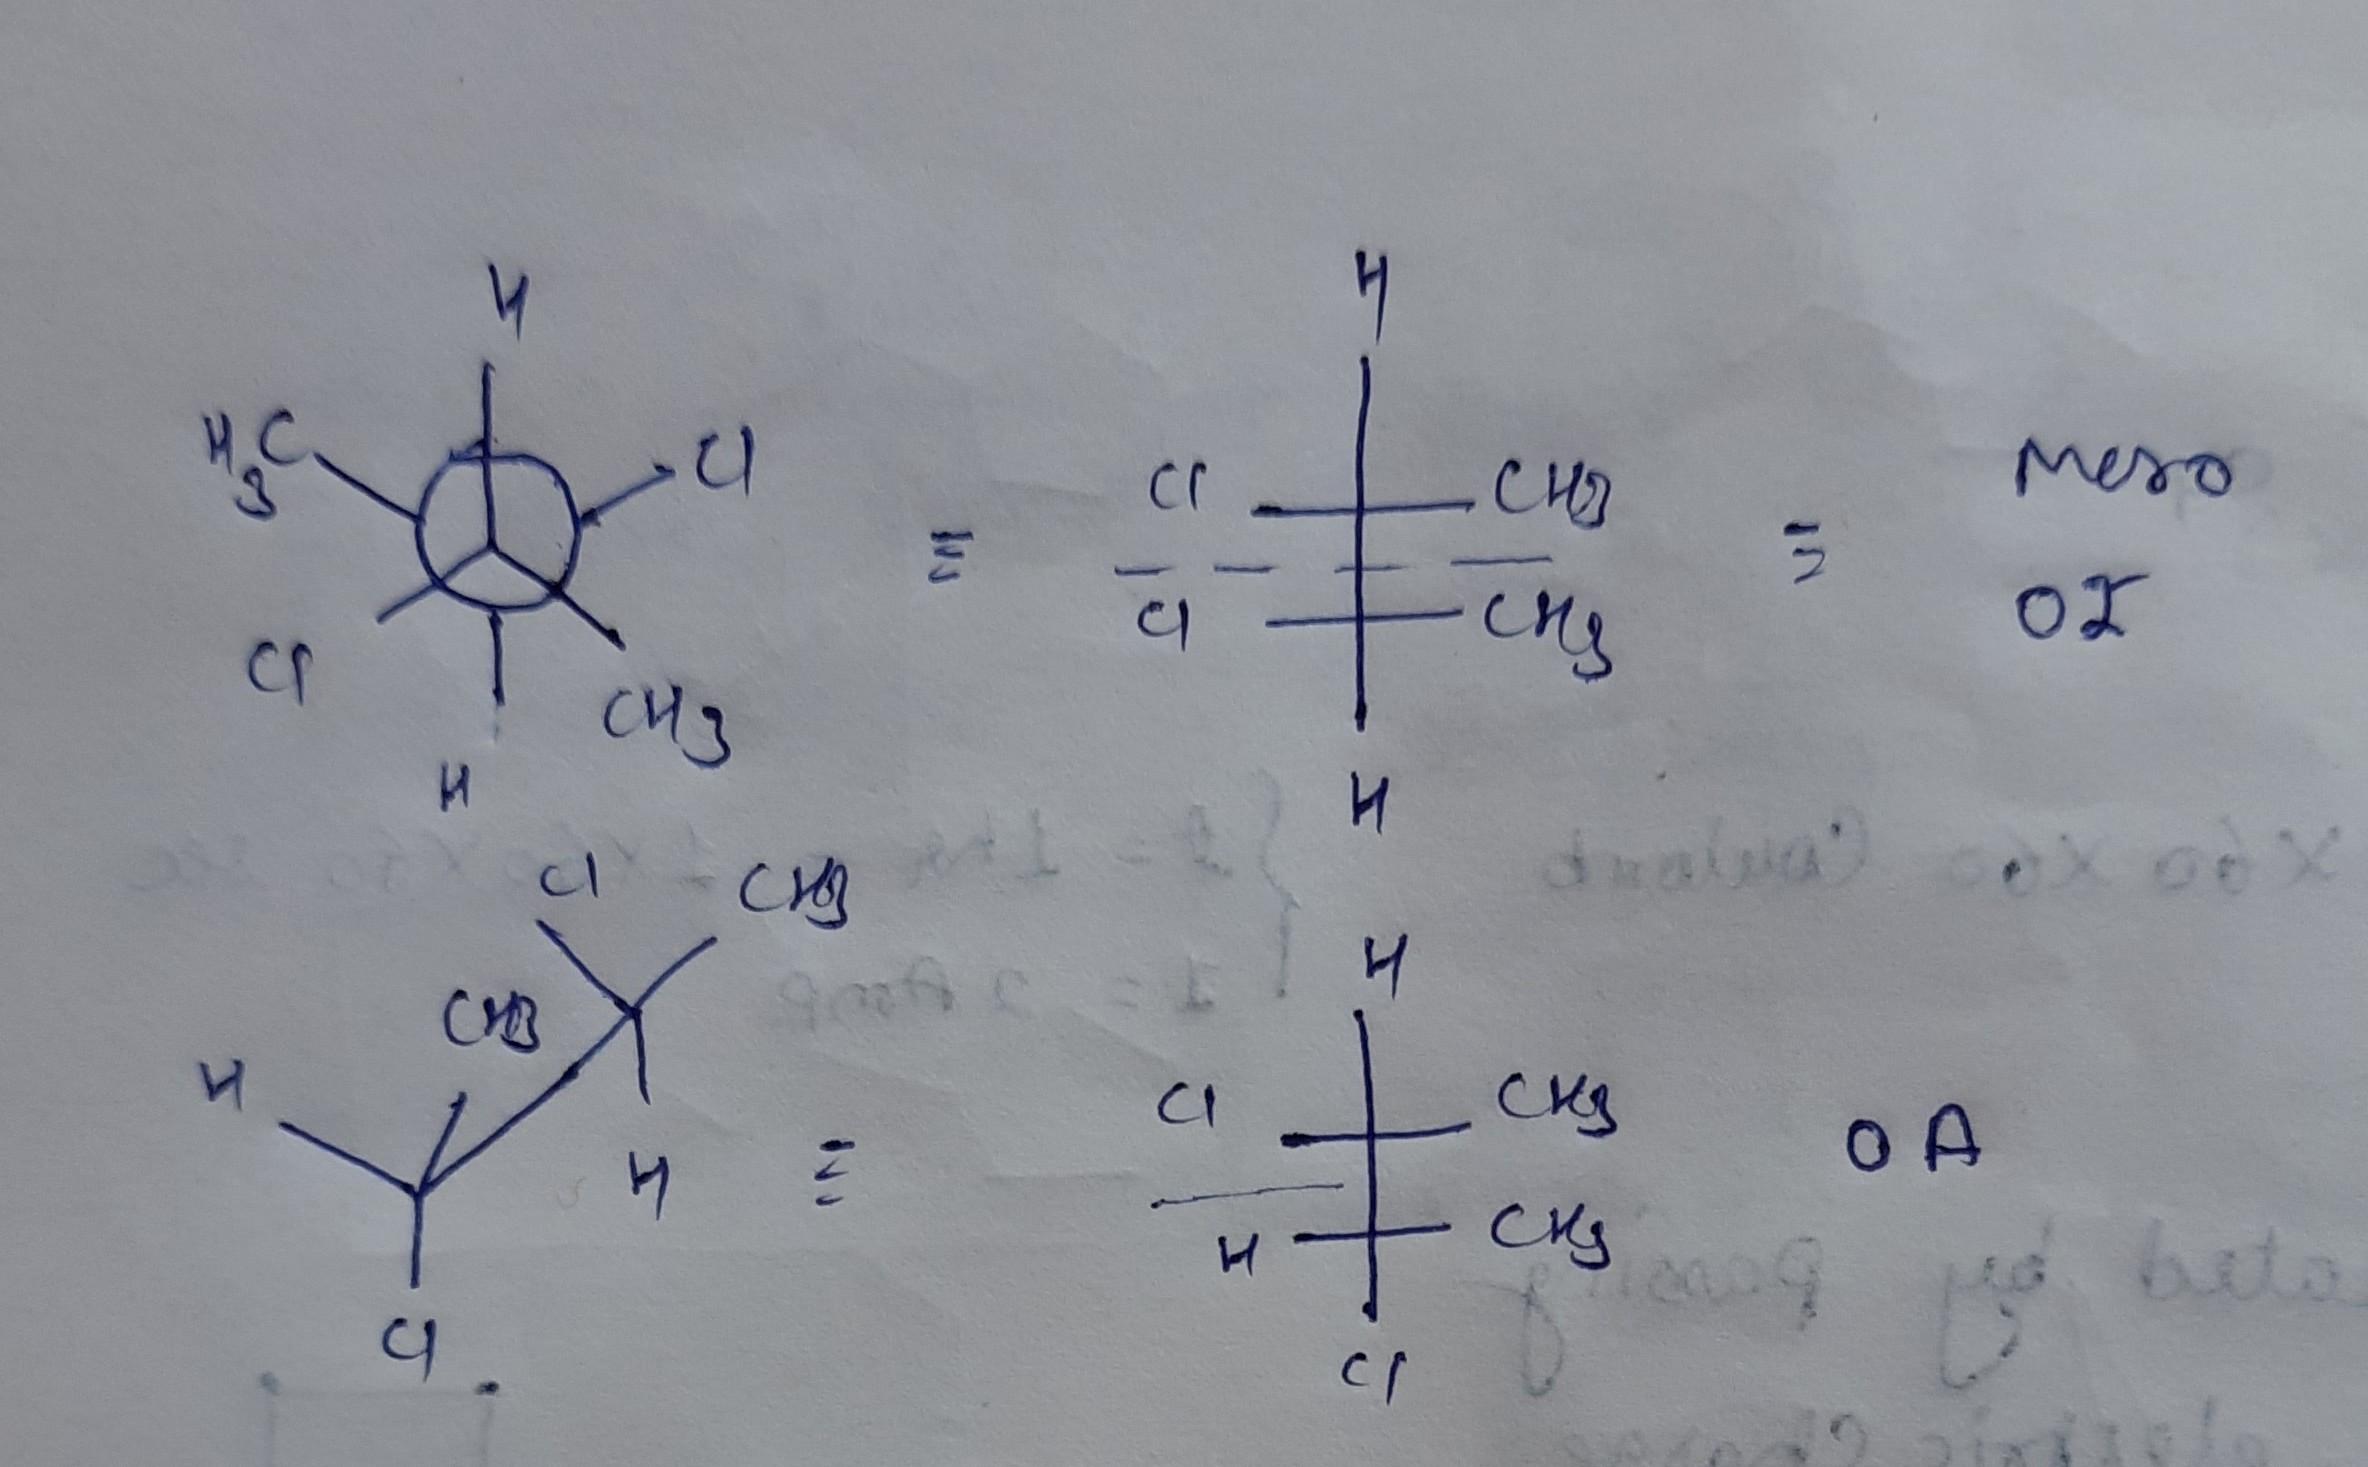 H
H₃C Cl
Cl CH3
H
≡
H
Cl CH3
Cl CH3
H
=
Meso
OI
Cl CH3
CH3
H
H
Cl
≡
H
Cl CH3
H CH3
Cl
OA